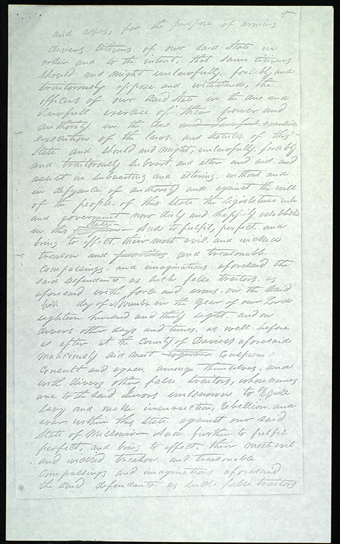 5
and arms, for the purpose of arming
divers citizens of our said State in
order and to the intent, that same citizens
should and might unlawfully, forcibly and
traitorously oppose and withstand, the
officers of our said State in the due and
lawfull exercise of their power and
authority in the due
execution of the laws, and statutes of this
State and should and might, unlawfully, forcibly
and traitorously subvert and alter and aid and
assist in subverting and altering, without and
in defyance of authority and against the will
of the people of this State the legislature rule
and government now duly and happily established
in this State And to fulfil, perfect, and
bring to effect, their most evil and wicked
treason and and treasonable
compassings, and imaginations aforesaid the
said defendants as such false traitors as
aforesaid with force and arms, on the said
day of November in the year of our Lord
eighteen hundred and thirty eight, and on
divers other days and times, as well before
as after at the County of Daviess aforesaid
maliciously did meet together Conspire
Consult and agree among themselves, and
with divers other false traitors, whose names
are to the said Jurors unknown to
levy and make insurrection, rebellion, and
war within this State against our said
State of Missouri And further to fulfil
perfect, and bring to effect their most evil
and wicked treason and treasonable
compassings and imaginations aforesaid
the said defendants, as such false traitors